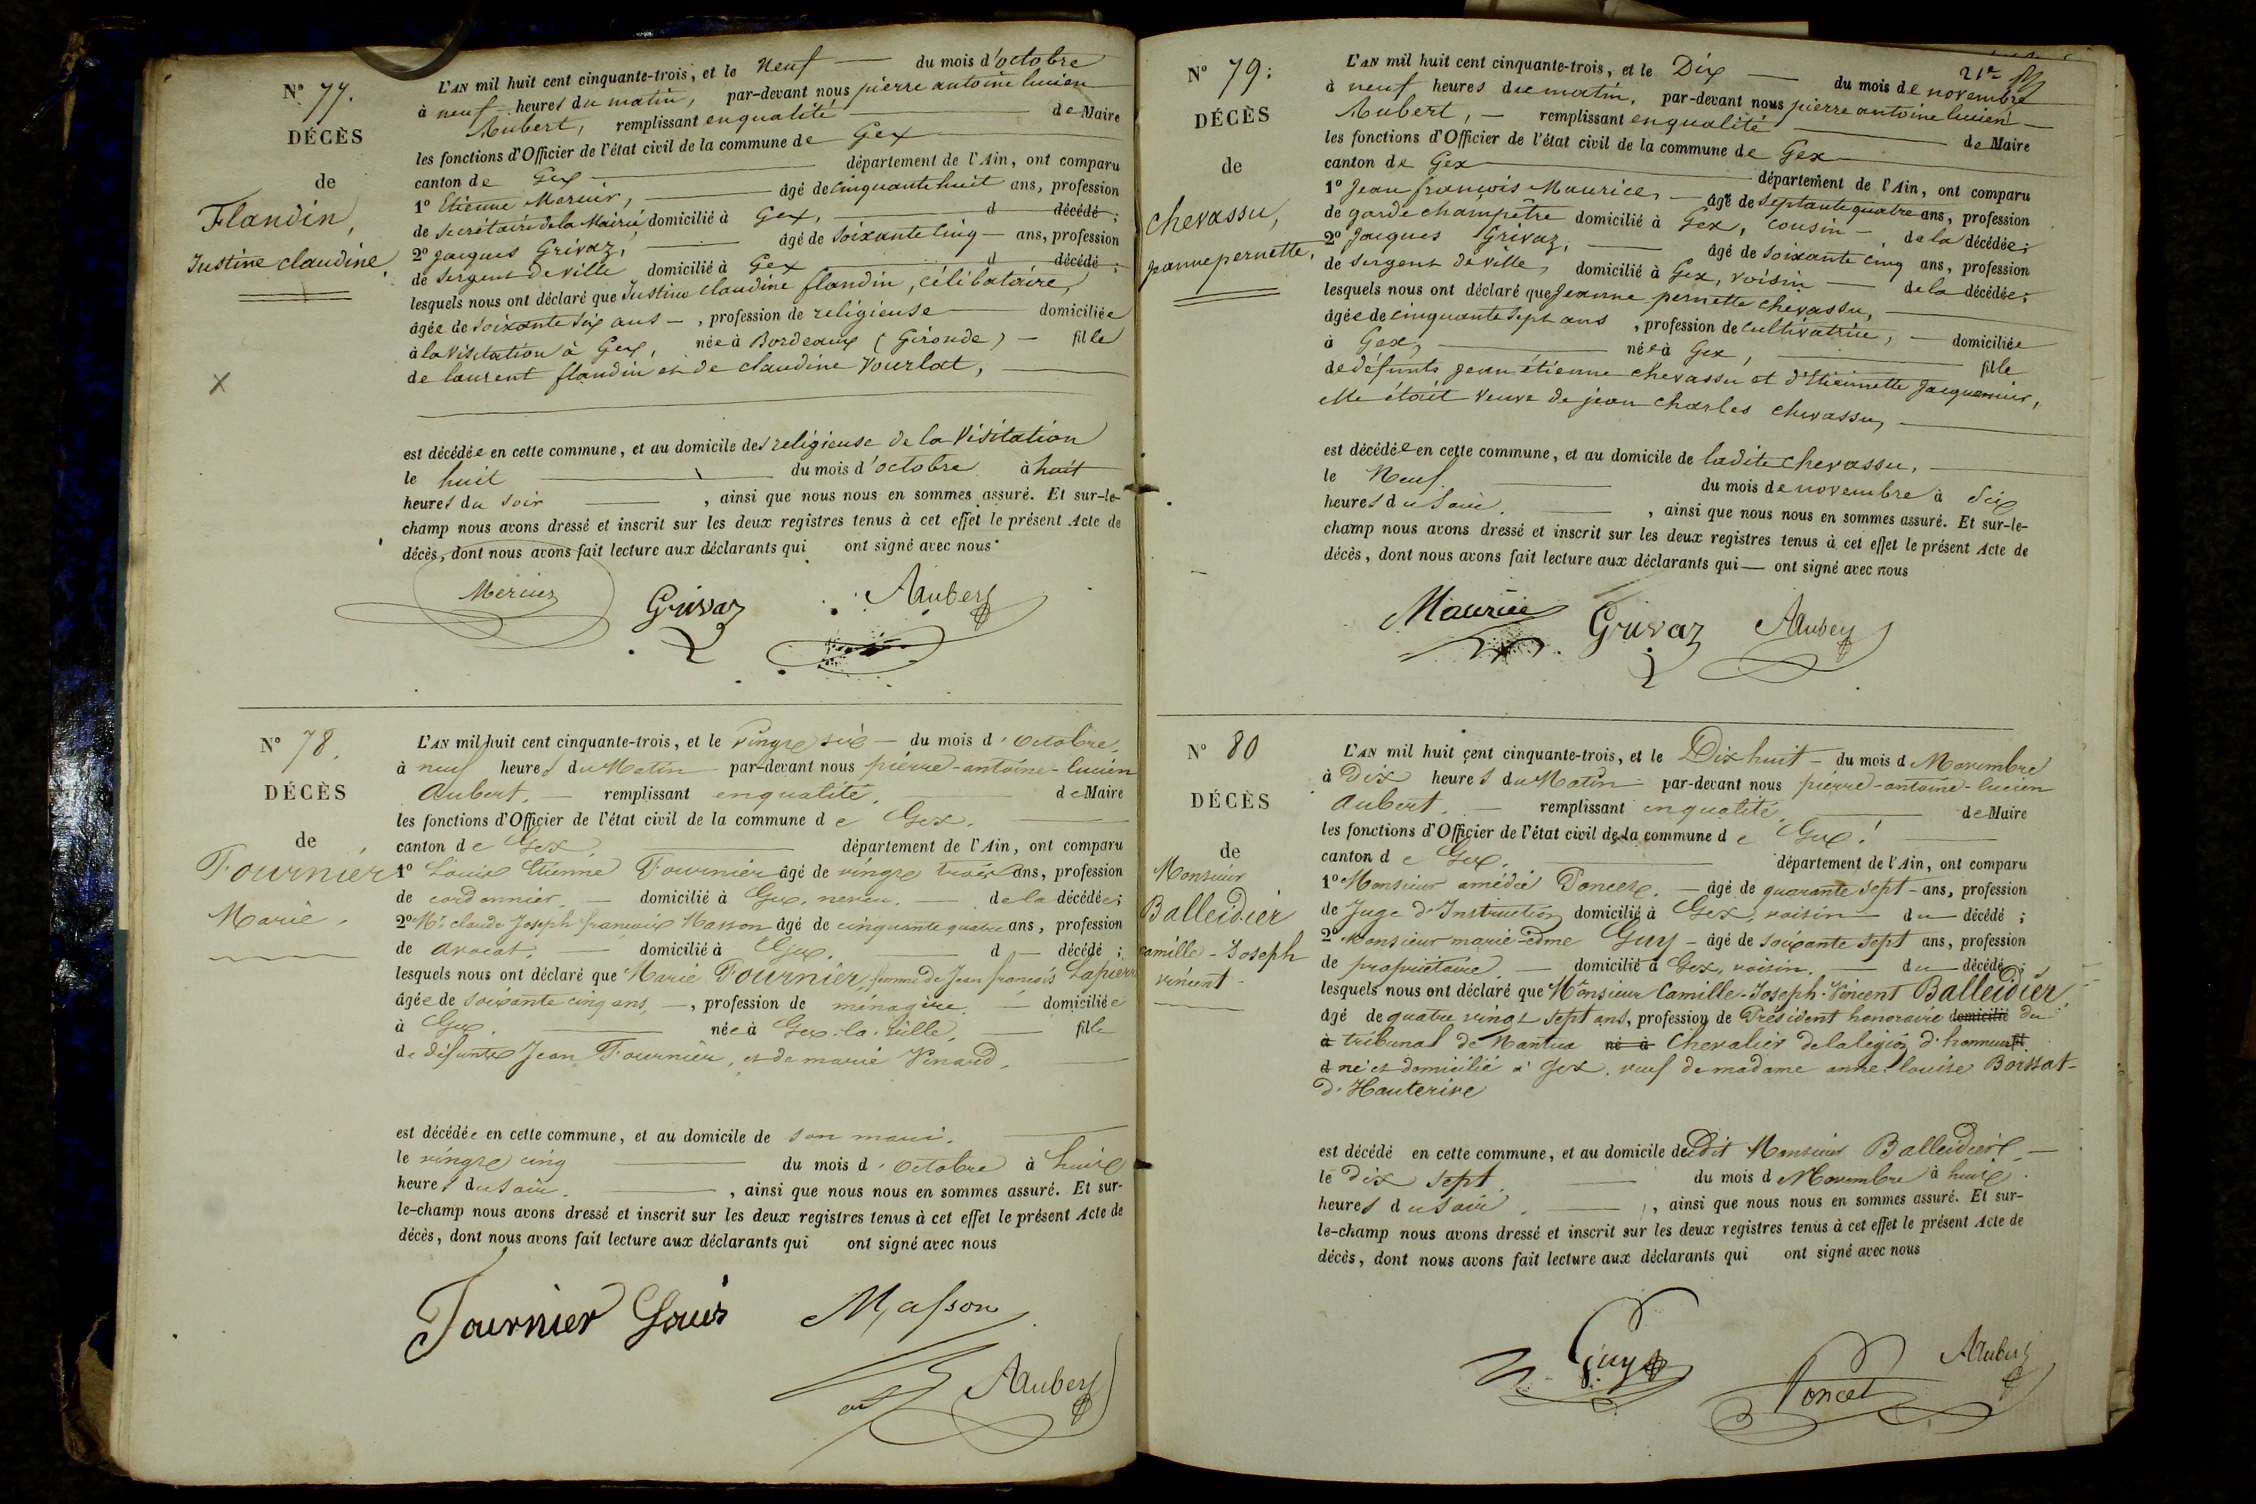 N° 77.
DÉCÈS
de
Flandin,
Justine claudine.
L'AN mil huit cent cinquante-trois, et le Neuf — du mois d'octobre
à neuf heures du matin, par-devant nous pierre antoine lucien
Aubert, remplissant en qualité — de Maire
les fonctions d'Officier de l'état civil de la commune de Gex
canton de Gex — département de l'Ain, ont comparu
1° Etienne Mercier, — âgé de cinquante huit ans, profession
de secrétaire de la Mairie domicilié à Gex, — d décédé ;
2° Jacques Grivaz, — âgé de soixante cinq — ans, profession
de sergent de ville domicilié à Gex — d décédé ;
lesquels nous ont déclaré que Justine claudine flandin, célibataire,
âgée de soixante six ans —, profession de religieuse — domiciliée
à la Visitation à Gex, née à Bordeaux (Gironde) — fille
de laurent flandin et de claudine Vourlat, —
est décédée en cette commune, et au domicile des religieuse de la Visitation
le huit — du mois d'octobre à huit
heures du soir — , ainsi que nous nous en sommes assuré. Et sur-le-
champ nous avons dressé et inscrit sur les deux registres tenus à cet effet le présent Acte de
décès, dont nous avons fait lecture aux déclarants qui ont signé avec nous
Mercier Grivaz AAubert
N° 78.
DÉCÈS
de
Fournier
Marie.
L'AN mil huit cent cinquante-trois, et le vingt six — du mois d'octobre,
à neuf heures du Matin par-devant nous pierre-antoine-lucien
Aubert. — remplissant en qualité. — de Maire
les fonctions d'Officier de l'état civil de la commune de Gex. —
canton de Gex — département de l'Ain, ont comparu
1° Louis Etienne Fournier âgé de vingt trois ans, profession
de cordonnier. — domicilié à Gex, neveu. — de la décédée;
2° Mr claude Joseph françois Masson âgé de cinquante quatre ans, profession
de avocat. — domicilié à Gex. — d — décédé ;
lesquels nous ont déclaré que Marie Fournier, femme de Jean françois Lapierre
âgée de soixante cinq ans, —, profession de ménagère. — domiciliée
à Gex. — née à Gex-la-ville, — fille
de défunts Jean Fournier, et de marie Vinard. —
est décédée en cette commune, et au domicile de son mari. —
le vingt cinq — du mois d'octobre à huit
heures du soir. — , ainsi que nous nous en sommes assuré. Et sur-
le-champ nous avons dressé et inscrit sur les deux registres tenus à cet effet le présent Acte de
décès, dont nous avons fait lecture aux déclarants qui ont signé avec nous
Fournier Louis Masson
AAubert
21e
N° 79:
DÉCÈS
de
chevassu,
jeanne pernette,
L'AN mil huit cent cinquante-trois, et le Dix — du mois de novembre
à neuf heures du matin, par-devant nous pierre antoine lucien —
Aubert, — remplissant en qualité — de Maire
les fonctions d'Officier de l'état civil de la commune de Gex
canton de Gex — département de l'Ain, ont comparu
1° Jean françois Maurice, — âgé de septante quatre ans, profession
de garde champêtre domicilié à Gex, cousin —, de la décédée;
2° Jacques Grivaz, — âgé de soixante cinq ans, profession
de sergent de ville, domicilié à Gex, voisin — de la décédée;
lesquels nous ont déclaré que Jeanne pernette chevassu, —
âgée de cinquante sept ans , profession de cultivatrice, — domiciliée
à Gex, — née à Gex, — fille
de défunts jean étienne chevassu et d'Etiennette Jacquemier,
elle était veuve de jean charles chevassu, —
est décédée en cette commune, et au domicile de ladite chevassu, —
le Neuf — du mois de novembre à Six
heures du soir. — , ainsi que nous nous en sommes assuré. Et sur-le-
champ nous avons dressé et inscrit sur les deux registres tenus à cet effet le présent Acte de
décès, dont nous avons fait lecture aux déclarants qui — ont signé avec nous
Maurice Grivaz AAubert
N° 80
DÉCÈS
de
Monsieur
Balleidier
camille-Joseph
vincent.
L'AN mil huit cent cinquante-trois, et le Dix huit — du mois d Novembre
à Dix heures du Matin par-devant nous pierre-antoine-lucien
Aubert. — remplissant en qualité. — de Maire
les fonctions d'Officier de l'état civil de la commune de Gex. —
canton de Gex. — département de l'Ain, ont comparu
1° Monsieur amédée Poncet. — âgé de quarante sept — ans, profession
de Juge d'Instruction domicilié à Gex, voisin — du décédé ;
2° Monsieur marie-edme Guy — âgé de soixante sept ans, profession
de propriétaire — domicilié à Gex, voisin. — du décédé ;
lesquels nous ont déclaré que Monsieur Camille-Joseph-Vincent Balleidier,
âgé de quatre vingt sept ans, profession de Président honoraire domicilié du
à tribunal de Nantua né à Chevalier de la légion d'honneur fil
d né et domicilié à Gex. veuf de madame anne-louise Borssat-
d'Hauterive
est décédé en cette commune, et au domicile dudit Monsieur Balleidier. —
le dix sept. — du mois d Novembre à huit
heures du soir. — , ainsi que nous nous en sommes assuré. Et sur-
le-champ nous avons dressé et inscrit sur les deux registres tenus à cet effet le présent Acte de
décès, dont nous avons fait lecture aux déclarants qui ont signé avec nous
Guy Poncet AAubert